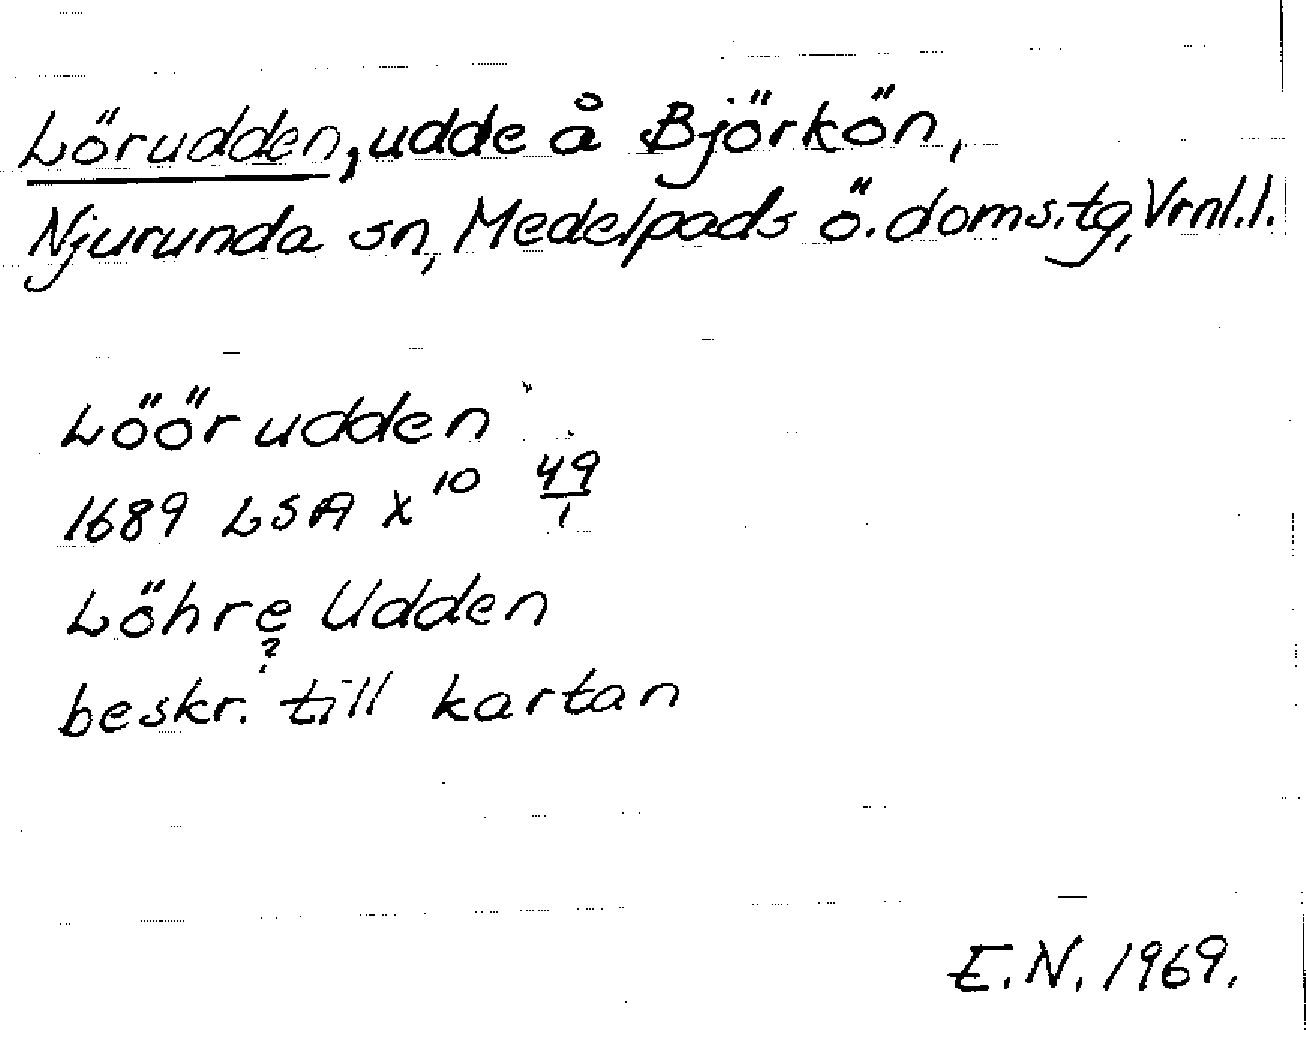 Lörudden, udde å Björkön,
Njurunda sn, Medelpads ö. doms.tg, Vrnl.l.
Löör udden
1689 LSA X¹⁰ 49/1
Löhre Udden
?
beskr. till kartan
E.N. 1969.